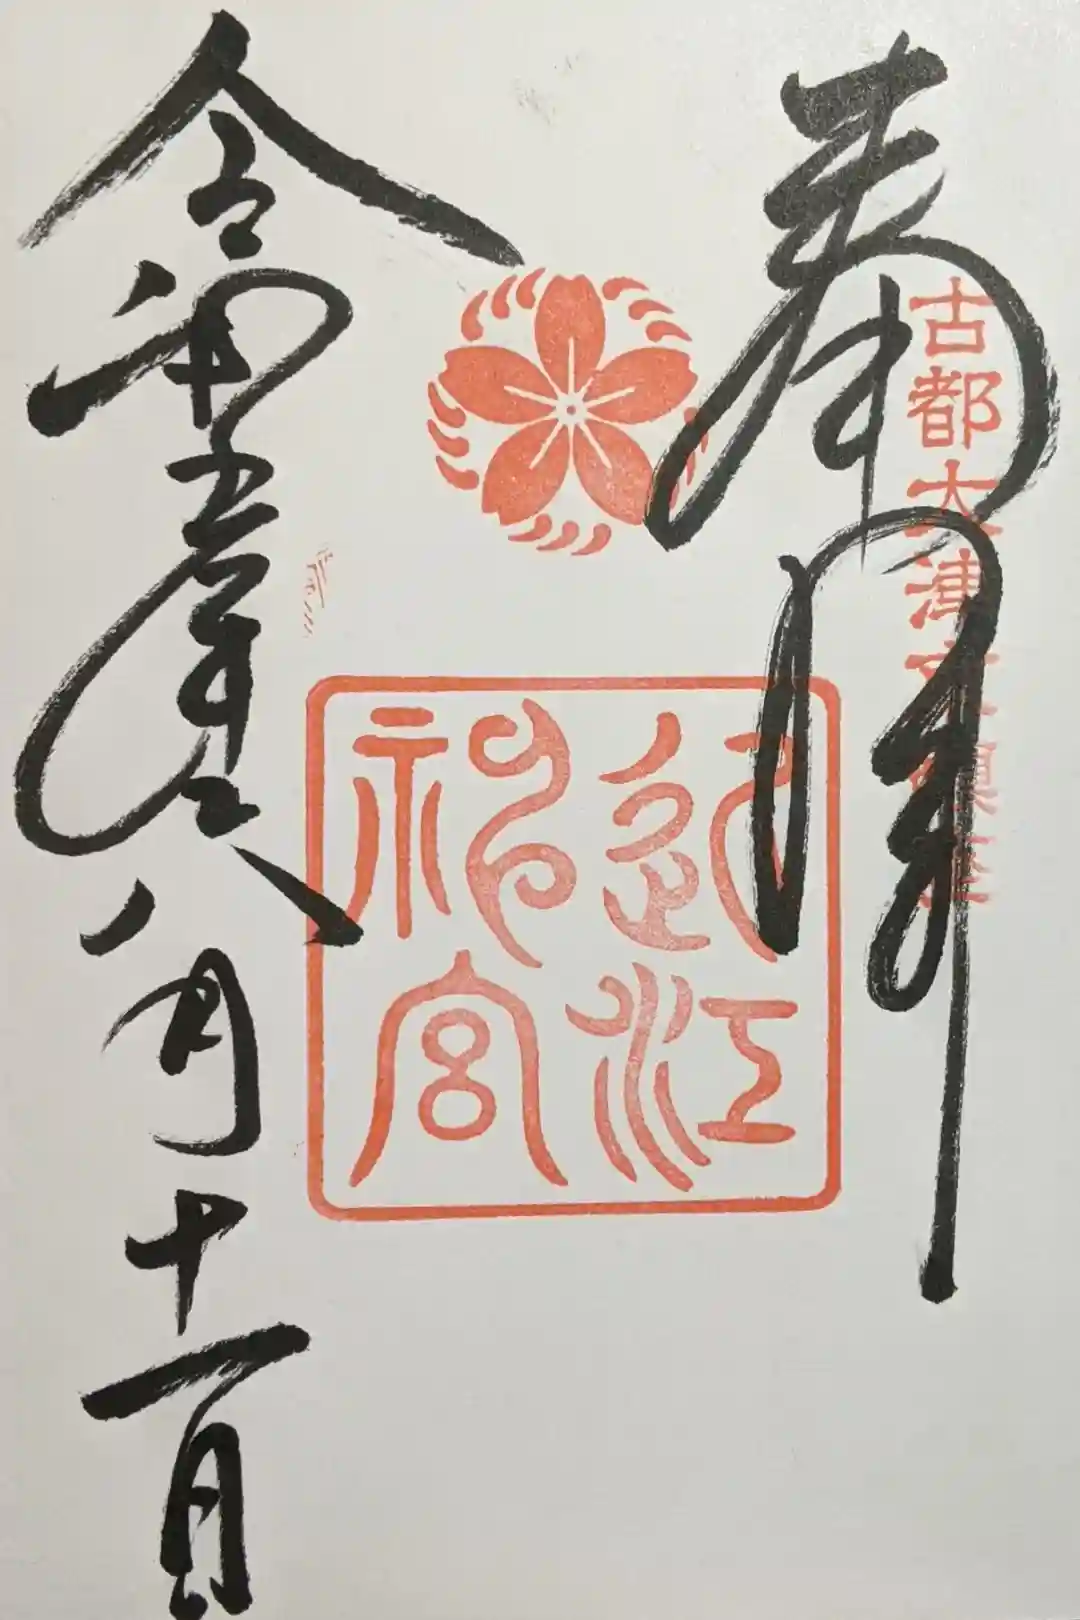 奉拝
古都大津京鎮座
近江
神宮
令和五年八月十一日